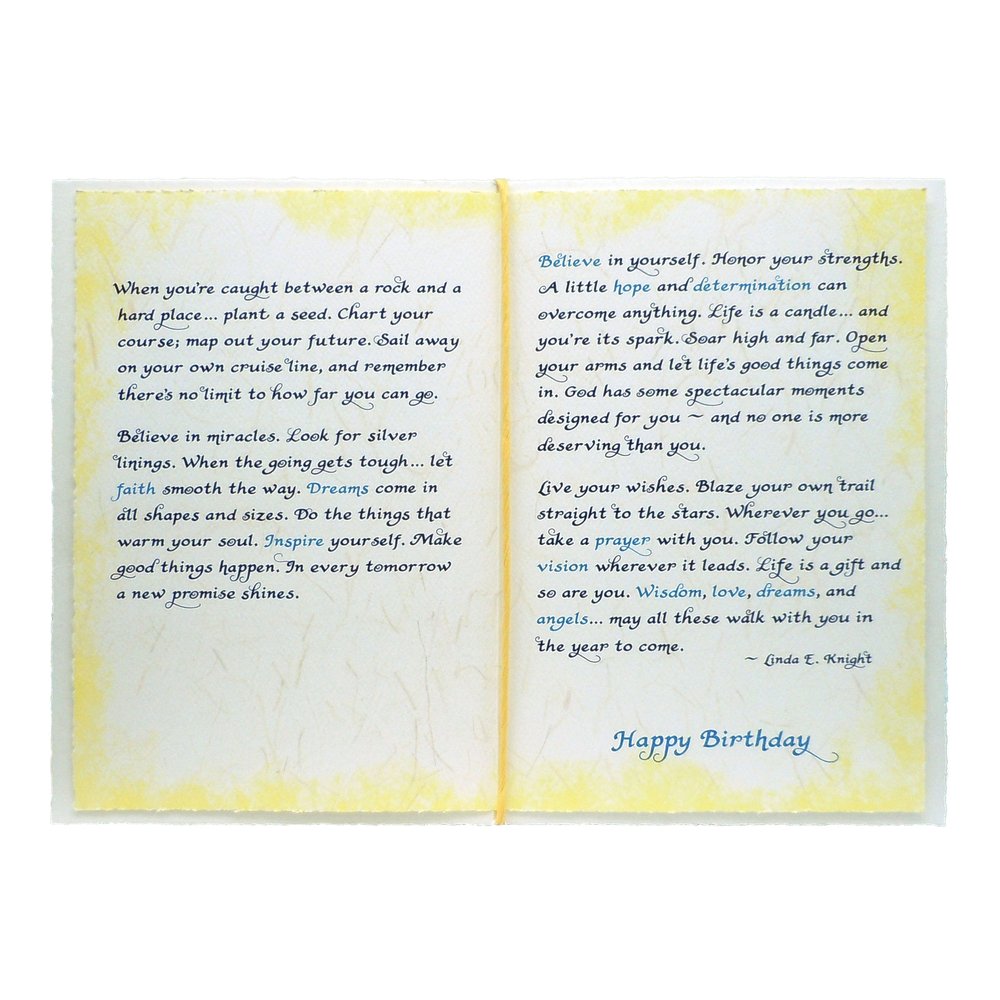 When you're caught between a rock and a
hard place... plant a seed. Chart your
course; map out your future. Sail away
on your own cruise line, and remember
there's no limit to how far you can go.
Believe in miracles. Look for silver
linings. When the going gets tough... let
faith smooth the way. Dreams come in
all shapes and sizes. Do the things that
warm your soul. Inspire yourself. Make
good things happen. In every tomorrow
a new promise shines.
Believe in yourself. Honor your strengths.
A little hope and determination can
overcome anything. Life is a candle... and
you're its spark. Soar high and far. Open
your arms and let life's good things come
in. God has some spectacular moments
designed for you ~ and no one is more
deserving than you.
Live your wishes. Blaze your own trail
straight to the stars. Wherever you go...
take a prayer with you. Follow your
vision wherever it leads. Life is a gift and
so are you. Wisdom, love, dreams, and
angels... may all these walk with you in
the year to come.
~ Linda E. Knight
Happy Birthday